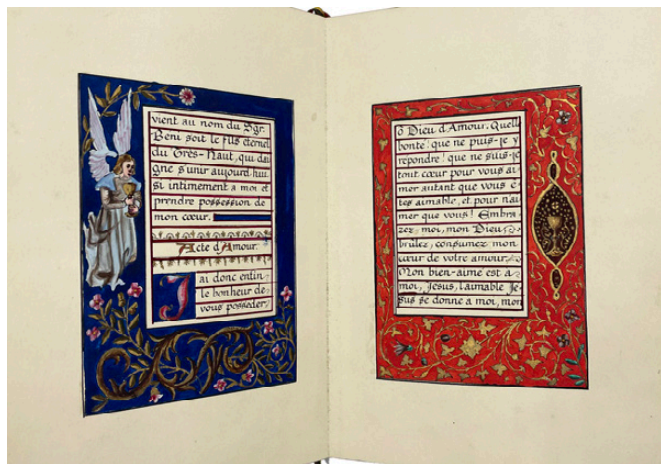 vient au nom du Sgr.
Beni soit le fils eternel
du Très-Haut, qui dai
gne s'unir aujourd'hui
si intimement a moi et
prendre possession de
mon cœur.
Acte d'Amour.
J'ai donc enfin
le bonheur de
vous posseder,
ô Dieu d'Amour. Quelle
bonte! que ne puis-je y
repondre! que ne suis-je
tout cœur pour vous ai
mer autant que vous ê
tes aimable, et pour n'ai
mer que vous! Embra
zez-moi, mon Dieu,
brûlez, consumez mon
cœur de votre amour.
Mon bien-aimé est a
moi, Jesus, l'aimable Je
sus se donne a moi, mon